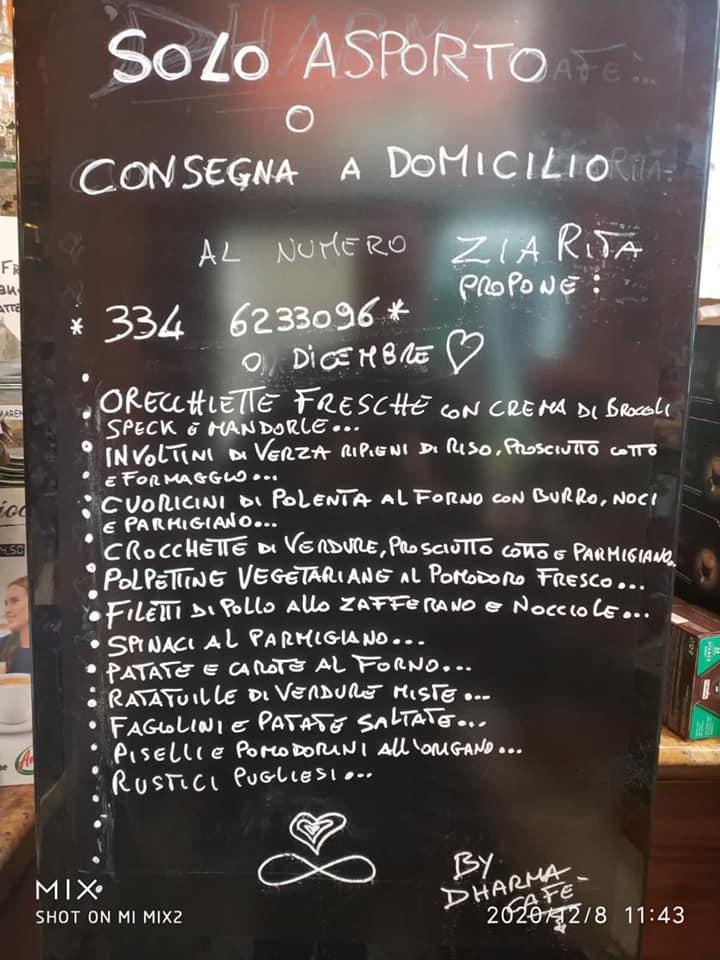 SOLO ASPORTO
O
CONSEGNA A DOMICILIO
AL NUMERO ZIA RITA
PROPONE:
* 334 6233096 *
DICEMBRE ♡
ORECCHIETTE FRESCHE CON CREMA DI BROCCOLI
SPECK E MANDORLE...
INVOLTINI DI VERZA RIPIENI DI RISO, PROSCIUTTO COTTO
E FORMAGGIO...
CUORICINI DI POLENTA AL FORNO CON BURRO, NOCI
E PARMIGIANO...
CROCCHETTE DI VERDURE, PROSCIUTTO COTTO E PARMIGIANO.
POLPETTINE VEGETARIANE AL POMODORO FRESCO...
FILETTI DI POLLO ALLO ZAFFERANO E NOCCIOLE...
SPINACI AL PARMIGIANO...
PATATE E CAROTE AL FORNO...
RATATUILLE DI VERDURE MISTE...
FAGIOLINI E PATATE SALTATE...
PISELLI E POMODORINI ALL'ORIGANO...
RUSTICI PUGLIESI...
BY
DHARMA
CAFE
MIX
SHOT ON MI MIX2
2020/12/8 11:43